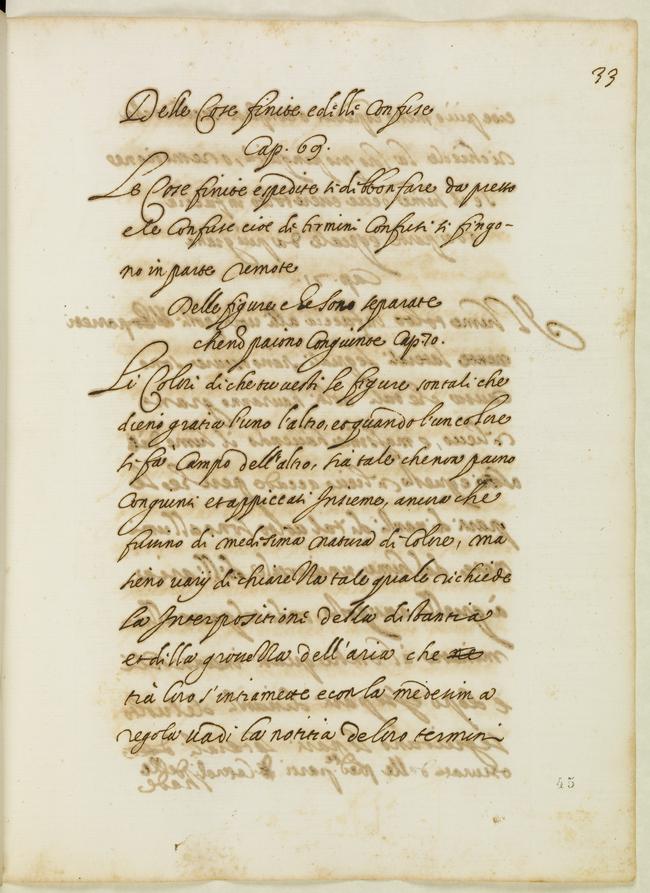 33
Delle Cose finite e delle Confuse
Cap. 69.
Le Cose finite e spedite si dibbon fare da presso
e le Confuse cioe de termini Confusi si fingo-
no in parte remote
Delle figure che sono separate
che nõ paiono Congiunte Cap. 70.
Li Colori di che tu vesti le figure son tali che
dieno gratia l'uno l'altro, et quando l'un colore
si fa Campo dell'altro, sia tale che non paino
Congiunti et appiccati Insieme, ancora che
fussino di medisima natura di Colore, ma
sieno varij di chiarezza tale quale richiede
La Interpositione della distantia
et della grossezza dell'aria che
tra loro s'intramette e con la medesima
regola vadi la notitia de loro termini
45